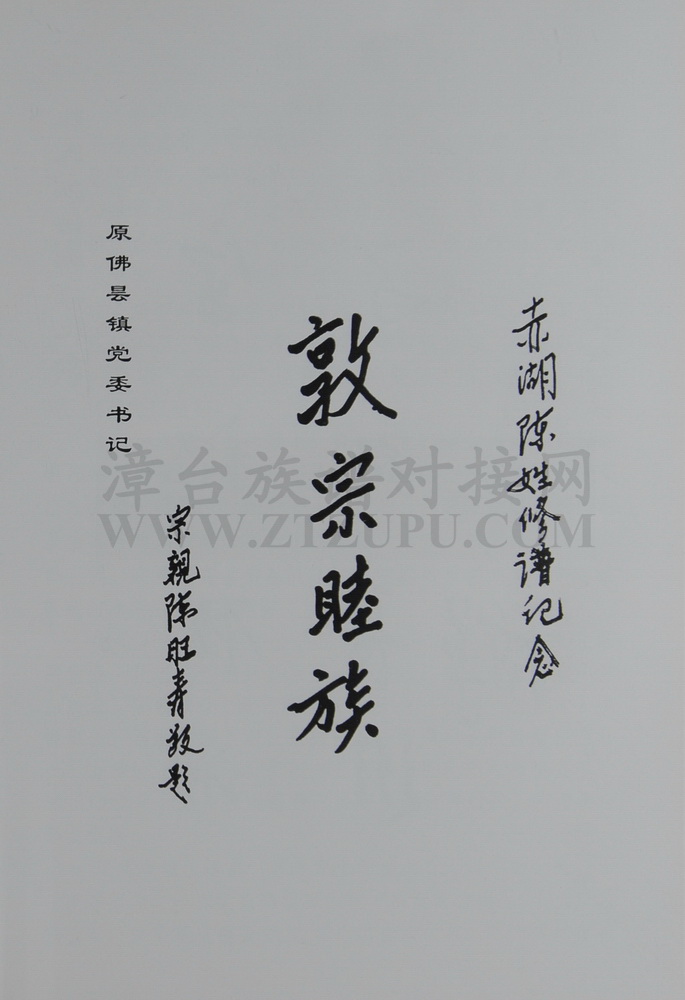 赤湖陈姓修谱记念
敦宗睦族
宗親陈旺寿敬题
原佛昙镇党委书记
漳台族谱对接网
WWW.ZTZUPU.COM